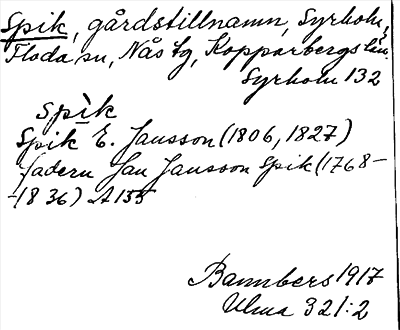 Spik, gårdstillnamn, Syrholn,
Floda sn, Nås tg, Kopparbergs län.
Syrholn 132
spìk
Spik E. Jansson (1806, 1827)
fadern Jan Jansson Spik (1768-
-1836) A155
Bannbers 1917
Ulma 321:2